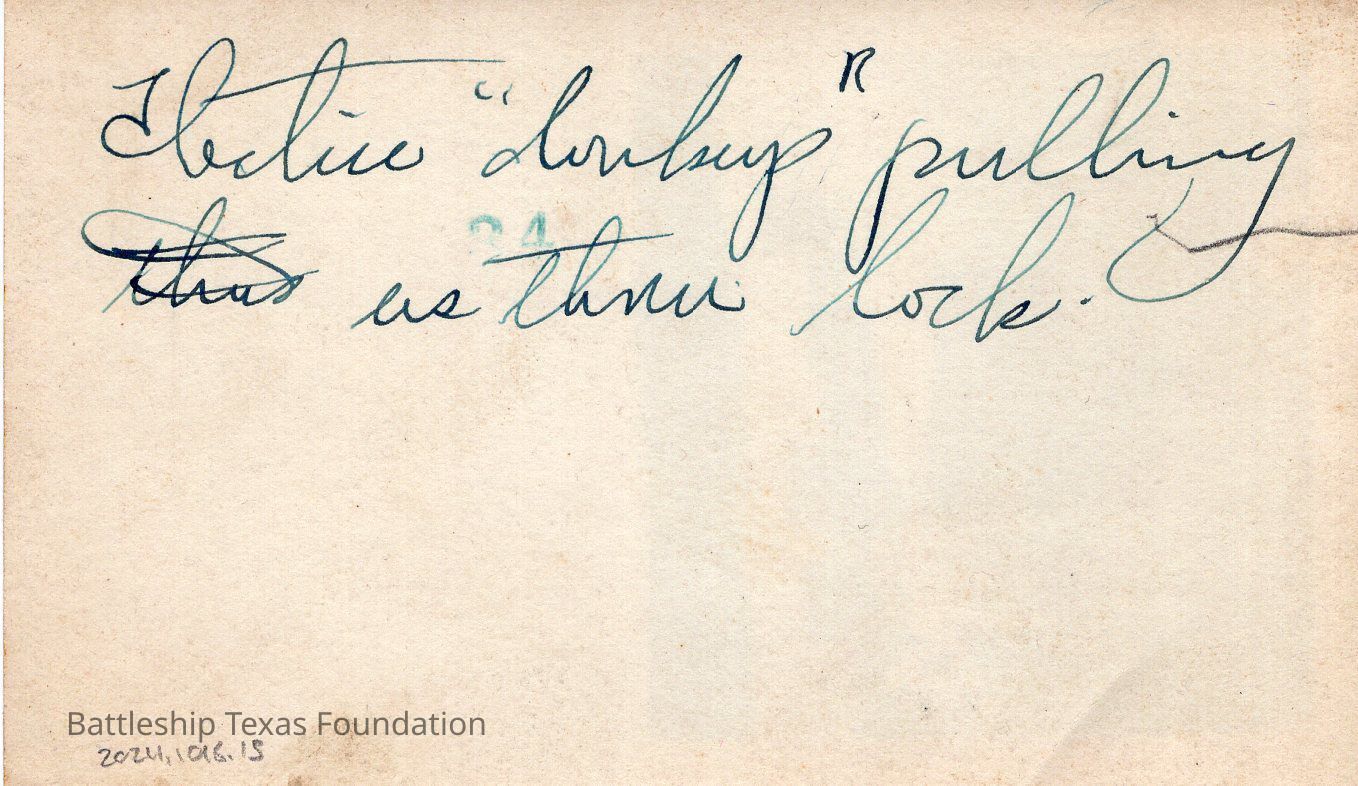 Electric "donkey" pulling
thus us thru lock.
24
Battleship Texas Foundation
2024.1016.15